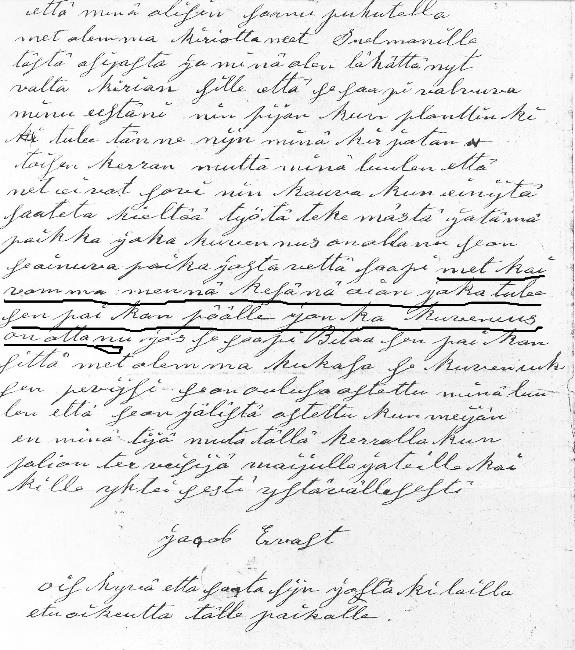 että minä olisin saanu puhutella
met olemma kiriottaneet Snelmanille
tästä asijasta ja minä olen lähättänyt
valta kirian sille että se saapi valvuva
minu eestäni nin pijan kun planttinki
tulee tänne nijn minä kirjotan
toisen kerran mutta minä luulen että
net eivat sovi nin kauva kun ei niytä
saateta kieltää työtä tekemästä ja tämä
paikka joka kuvennus on ottanu se on
se ainuva paika josta vettä saapi met kai
vomma mennä kesänä ojan joka tulee
sen paikan päälle jon ka kuvenuus
on ottanu jos se saapi Bitaa sen paikan
sittä met olemma hukasa se kuvennuk
sen perijsi se on oulusa ostettu minä luu
len että se on jälistä ostettu kun meijän
en minä tijä muta tällä kerralla kun
palion terveisijä maijulle ja teille kai
kille yhteisesti ystävällesesti
Jacob Ervast
ois hyvä että saata sijn jostaki lailla
etu oikeutta tälle paikalle.